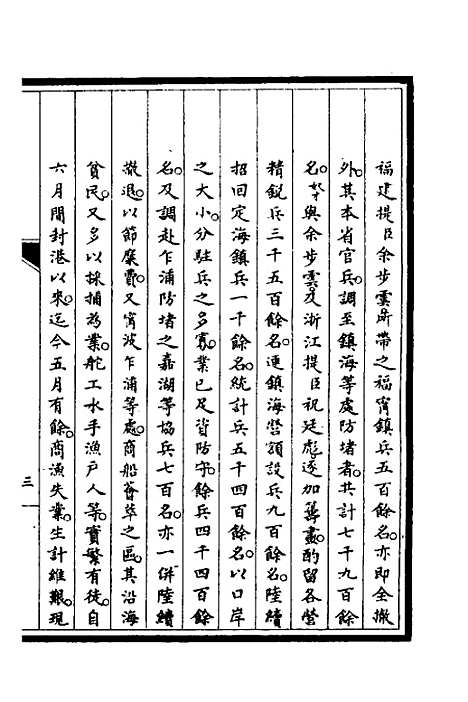 福建提臣余步雲所帶之福寧鎮兵五百餘名。亦即全撤
外。其本省官兵。調至鎮海等處防堵者。共計七千九百餘
名。奴才與余步雲。及浙江提臣祝廷彪。逐加籌畫。酌留各營
精銳兵三千五百餘名。連鎮海營額設兵九百餘名。陸續
招回定海鎮兵一千餘名。統計兵五千四百餘名。以口岸
之大小。分駐兵之多寡。業已足資防守。餘兵四千四百餘
名。及調赴乍浦防堵之嘉湖等協兵七百名。亦一併陸續
撤退。以節糜費。又寧波乍浦等處。商船薈萃之區。其沿海
貧民。又多以採捕為業。舵工水手漁戶人等。實繁有徒。自
六月間封港以來。迄今五月有餘。商漁失業。生計維艱。現
三